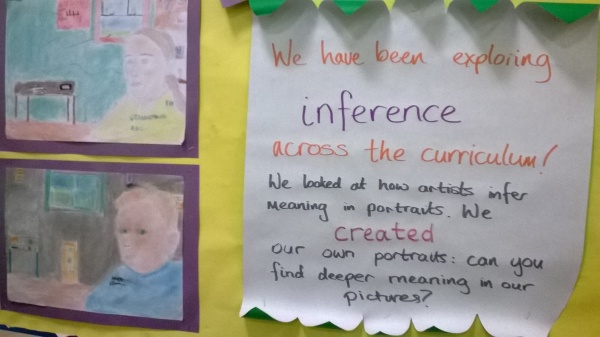 We have been exploring
inference
across the curriculum!
We looked at how artists infer
meaning in portraits. We
created
our own portraits: can you
find deeper meaning in our
pictures?